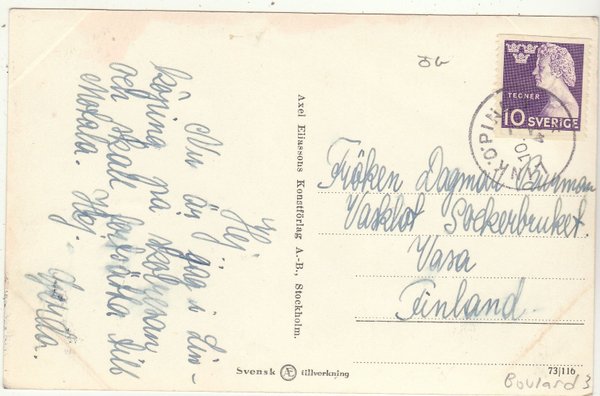 Hej
Nu är jag i Lin-
köping på skolresan
och skall fortsätta till
Motala. Hej.
Axel Eliassons Konstförlag A.-B., Stockholm.
TEGNER
10 SVERIGE
Fröken Dagmar
Vasklot Sockerbruket.
Vasa
Finland.
Svensk Æ tillverkning
73/116
Boulard 3